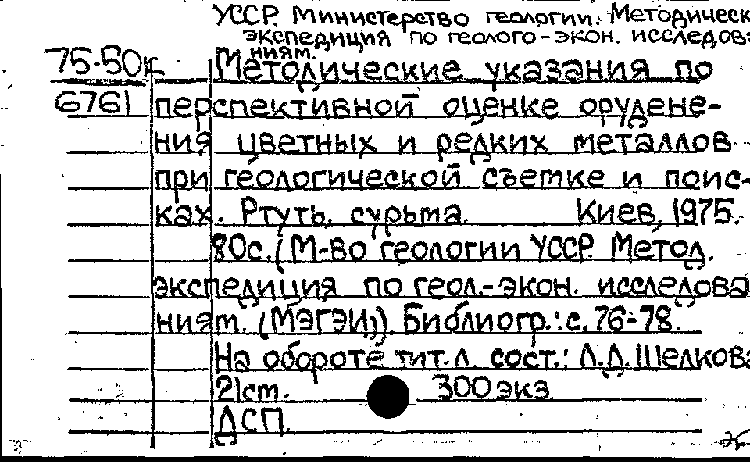 УССР. Министерство геологии. Методическ
экспедиция по геолого-экон. исследова
ниям.
75-50к Методические указания по
6761 перспективной оценке орудене-
ния цветных и редких металлов
при геологической съетке и поис-
ках. Ртуть, сурьта. Киев, 1975.
80с. (М-во геологии УССР. Метод.
экспедиция по геол.-экон. исследова
ниям. (МЭГЭИ)). Библиогр.: с. 76-78.
На обороте тит. л. сост.: Л.Д. Шелкова
21ст. 300 экз
ДСП.